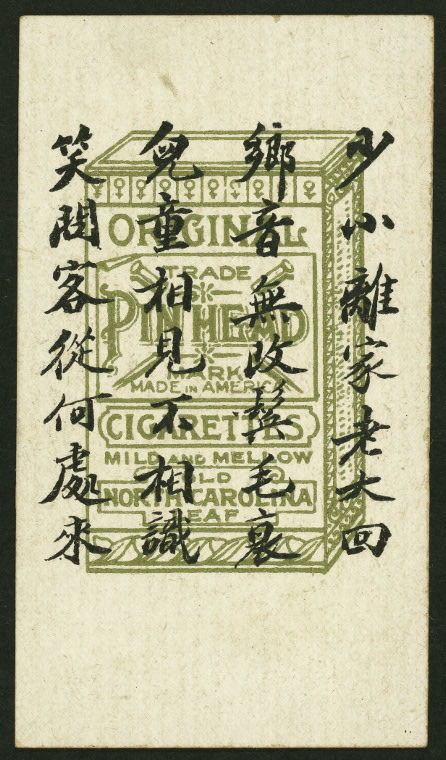 少小離家老大回
鄉音無改鬢毛衰
兒童相見不相識
笑問客從何處來
ORIGINAL
TRADE
PIN HEAD
MARK
MADE IN AMERICA
CIGARETTES
MILD AND MELLOW
OLD
NORTH CAROLINA
LEAF